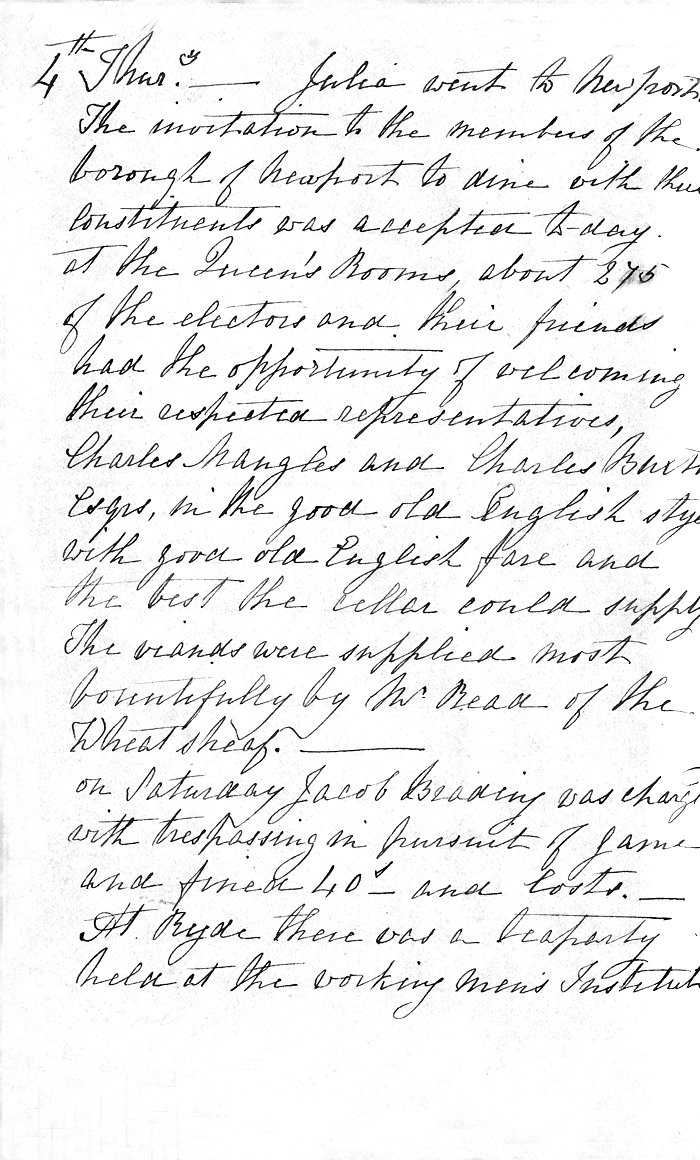 4th Thurs.y — Julia went to Newport
The invitation to the members of the
borough of Newport to dine with their
constituents was accepted to-day.
at the Queen's Rooms, about 275
of the electors and their friends
had the opportunity of welcoming
their respected representatives,
Charles Mangles and Charles Buxton
Esqrs, in the good old English stye
with good old English fare and
the best the cellar could supply
The viands were supplied most
bountifully by Mr Read of the
Wheatsheaf. —
on Saturday Jacob Brading was charg
with trespassing in pursuit of game
and fined 40s — and Costs. —
At Ryde there was a teaparty
held at the working men's Institut